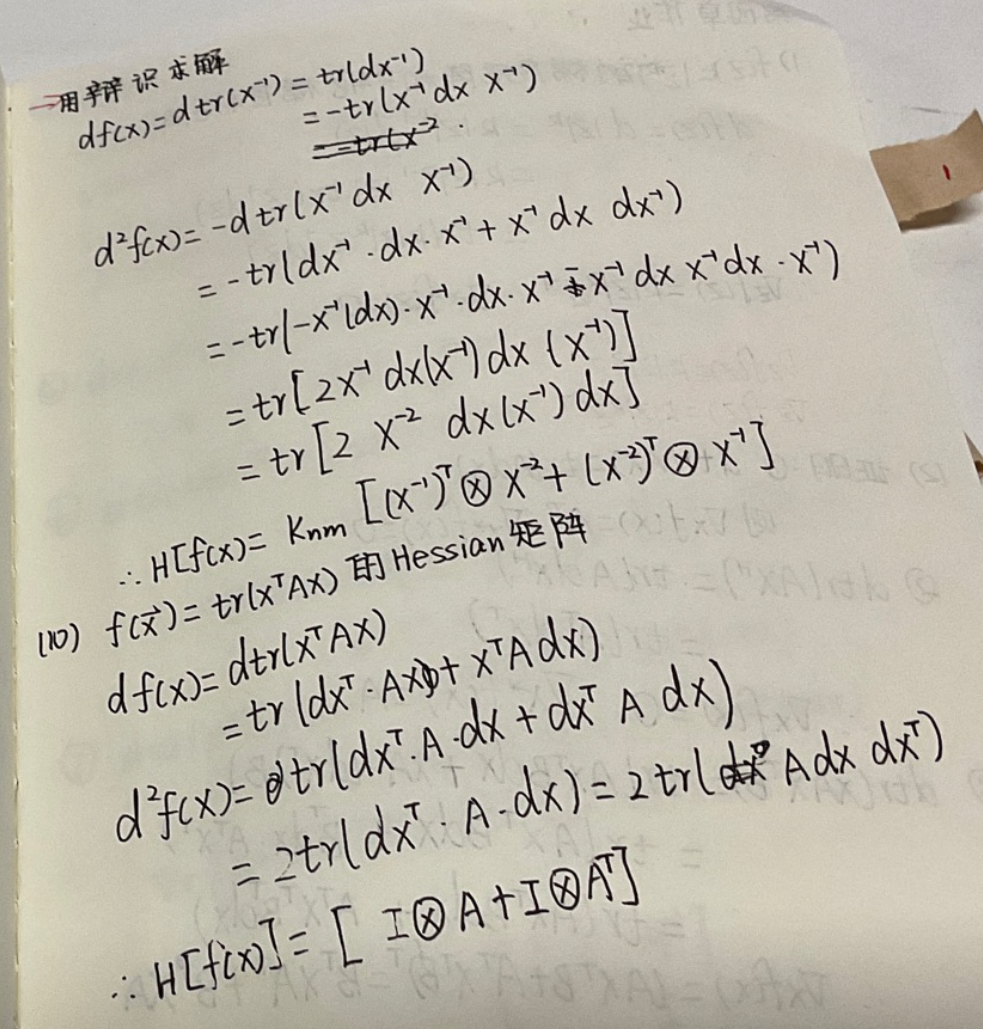 →用辩识求解
df(x)=dtr(x⁻¹)=tr(dx⁻¹)
=-tr(x⁻¹dx x⁻¹)
d²f(x)=-dtr(x⁻¹dx x⁻¹)
=-tr(dx⁻¹·dx·x⁻¹+x⁻¹dx dx⁻¹)
=-tr(-x⁻¹(dx)·x⁻¹·dx·x⁻¹-x⁻¹dx x⁻¹dx·x⁻¹)
=tr[2x⁻¹dx(x⁻¹)dx(x⁻¹)]
=tr[2x⁻²dx(x⁻¹)dx]
∴H[f(x)=Knm[(x⁻¹)ᵀ⊗x⁻²+(x⁻²)ᵀ⊗x⁻¹]
(10) f(x⃗)=tr(xᵀAx)的Hessian矩阵
df(x)=dtr(xᵀAx)
=tr(dxᵀ·Ax+xᵀAdx)
d²f(x)=tr(dxᵀ·A·dx+dxᵀAdx)
=2tr(dxᵀ·A·dx)=2tr(Adxdxᵀ)
∴H[f(x)]=[I⊗A+I⊗Aᵀ]
1